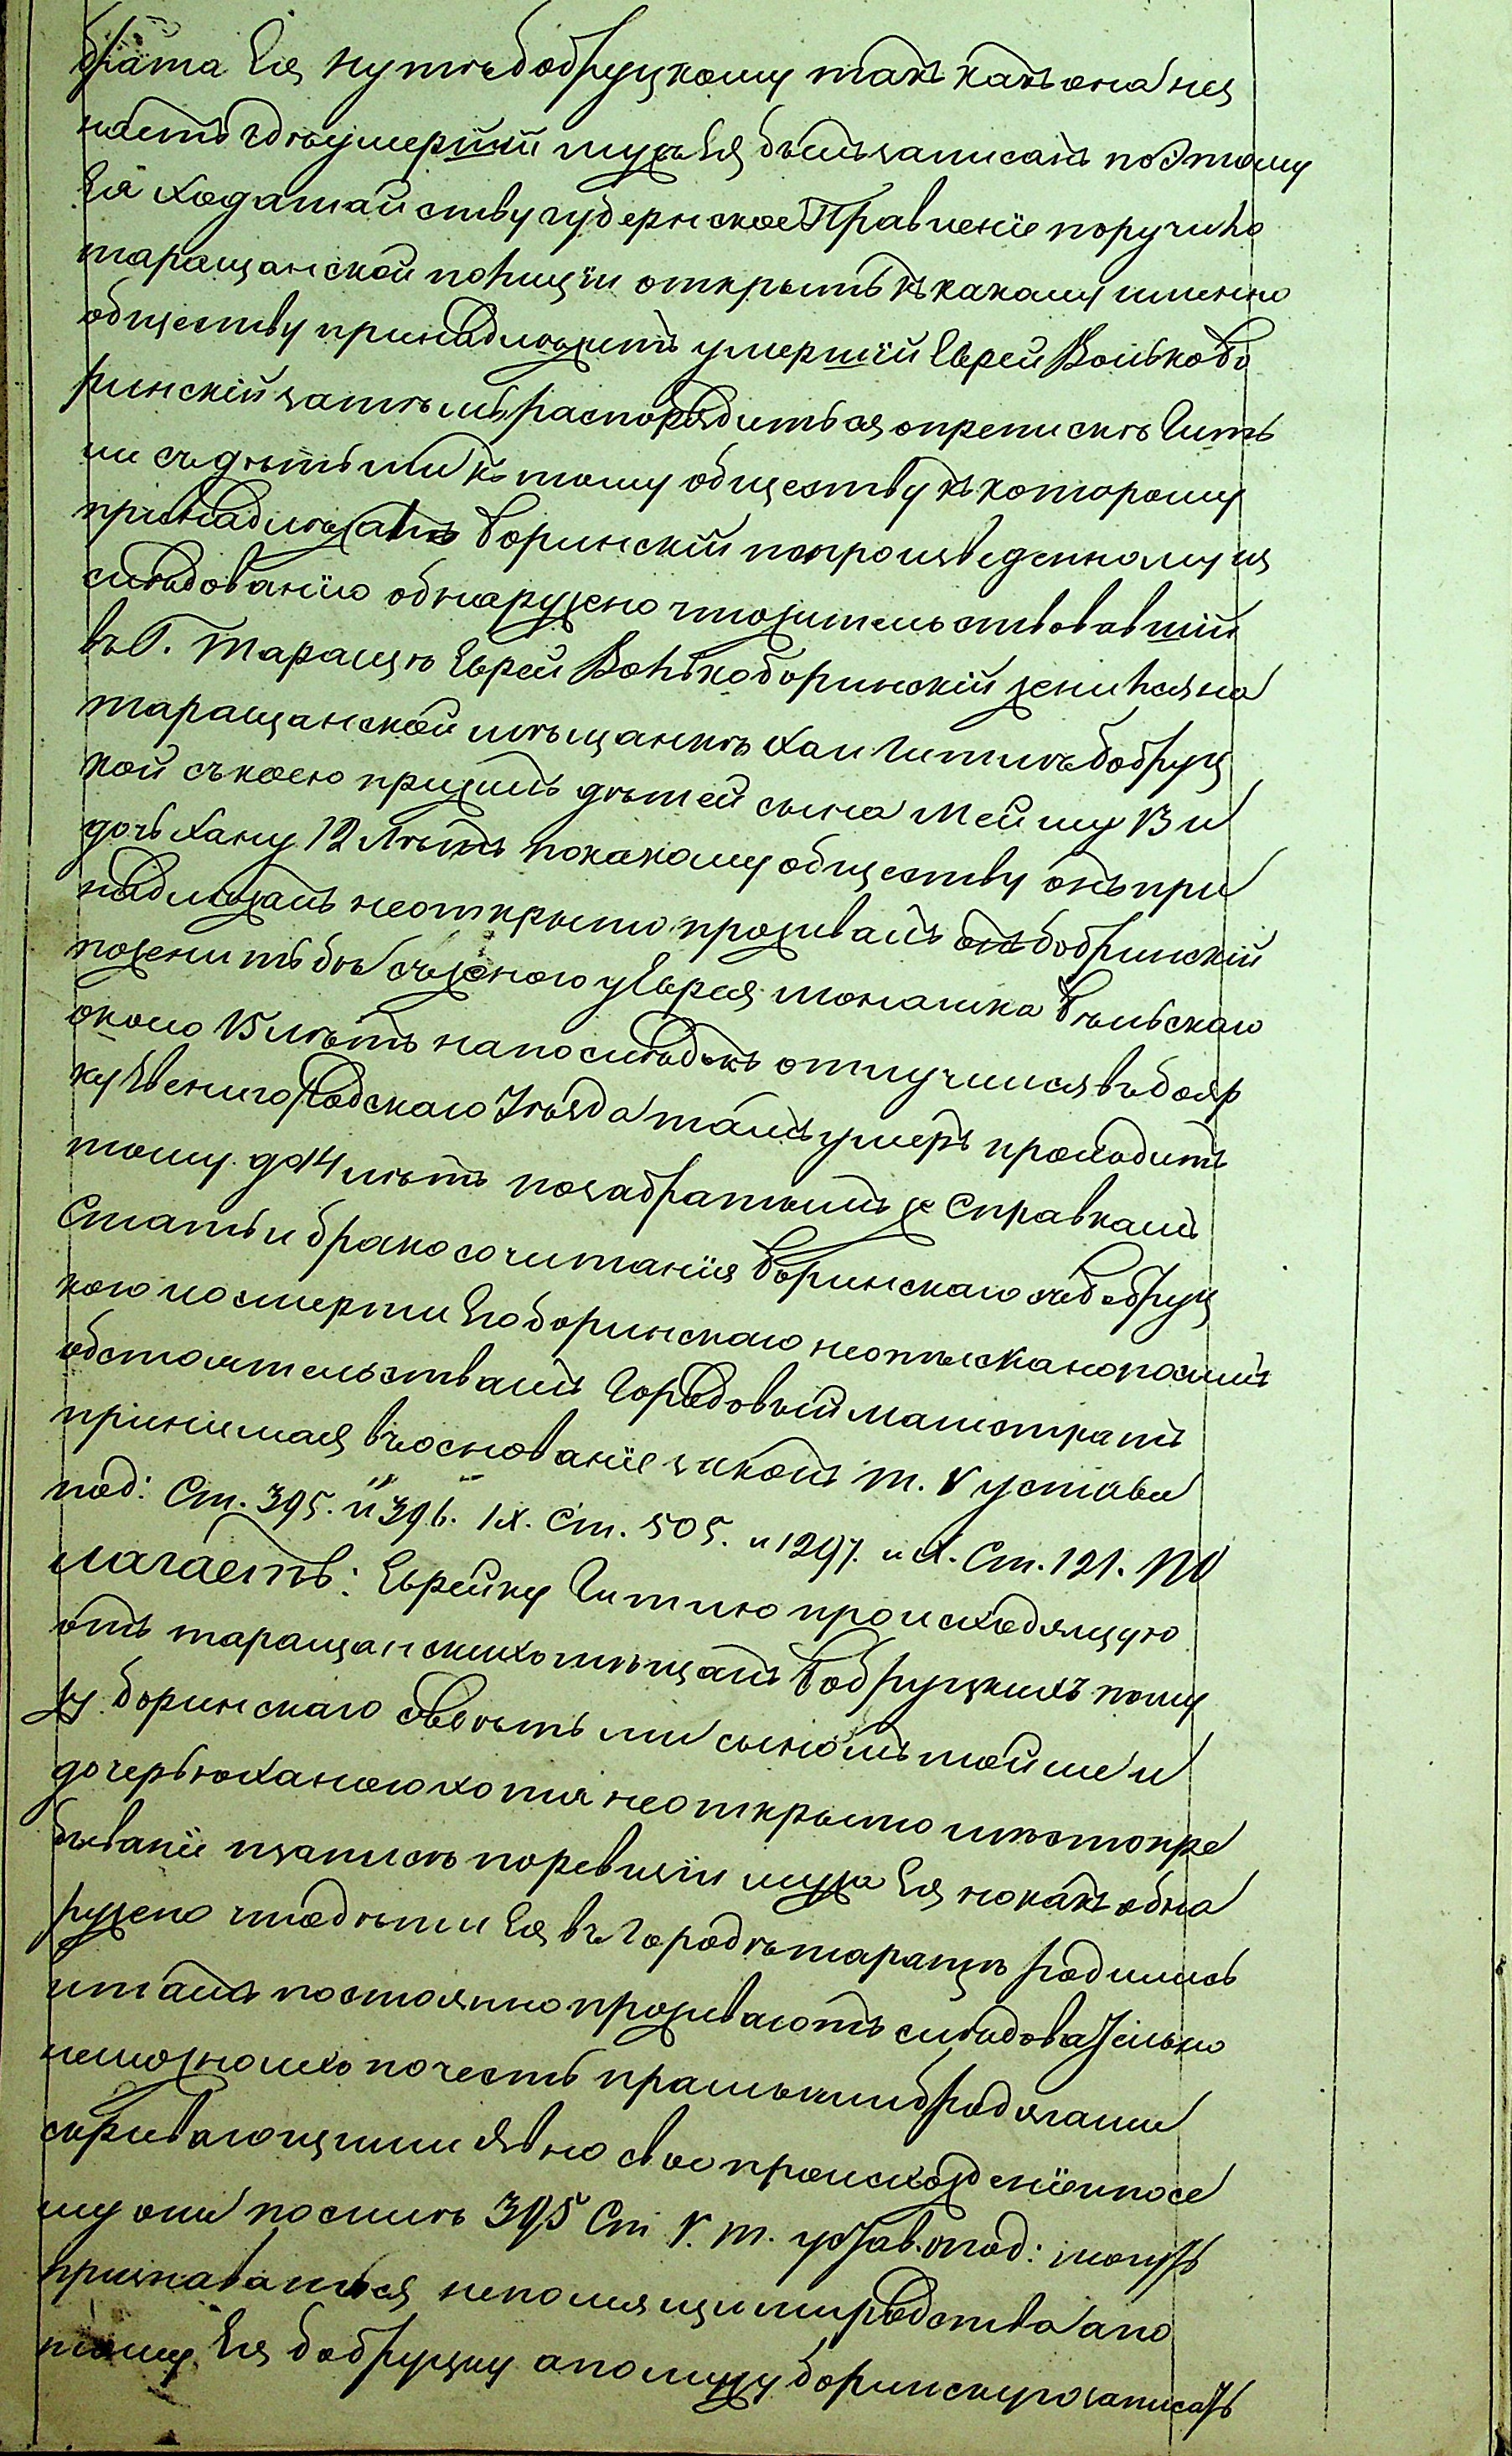 брата Ея Нутѣ бобруцкому такъ какъ она не из
настъ гдѣ умершій мужъ Ея былъ записанъ поэтому
Ея Ходатайству губернское Правленіе поручило
таращанской полиціи открыть къ какому именно
обществу принадлежитъ умершій Еврей Волько бо
ринскій затѣмъ распорядиться о преписке Гитъ
ли съ дѣтьми къ тому обществу къ которому
принадлежалъ Боринскій по произведенному из
слѣдованію обнаружено что жительствовавшій
въ Г. Таращѣ Еврей Волько боринскій женился на
таращанской мѣщанкѣ Хаи Гитлѣ бобруц
кой съ коею прижилъ дѣтей сына Мейшу 13 и
дочь Хану 12 Лѣтъ по какому обществу онъ при
надлежалъ не открыто проживалъ онъ бобринскій
по женитьбѣ съ женою у Еврея Монашка Бѣльскаго
около 15 лѣтъ на послѣдокъ отлучился въ бояр
ку Звенигородскаго Уѣзда тамъ умеръ происходитъ
тому до 14 лѣтъ по забратымъ же Справкамъ
Статьи бракосочитанія Боринскаго съ бобруц
кою и о смерти Его боринскаго не отыскано по симъ
обстоятельствамъ Городовый магистратъ
принимая въ основаніе законъ т. V устава
под: Ст. 395. и 396. IX. Ст. 505. и 1297. и X. Ст. 121. По
лагаетъ: Еврейку Гитлю происходящую
отъ таращанскихъ мѣщанъ Бобруцкихъ по му
жу боринскаго съ дѣтьми сыномъ мойше и
дочерью ханою хотя не открыто мѣсто пре
быванія и записѣ по ревизіи мужа Ея но какъ обна
ружено что дѣти Ея въ Городѣ таращѣ родились
и тамъ постоянно проживаютъ слѣдовательно
не можно ихъ почесть прамыми бродягами
скривающими явно свое происхожденіе и посе
му они по силѣ 395 Ст. V. т. устав. под: могутъ
признаваться непомнящими родства а по
тому Ея бобруцку а по мужу боринскую записать